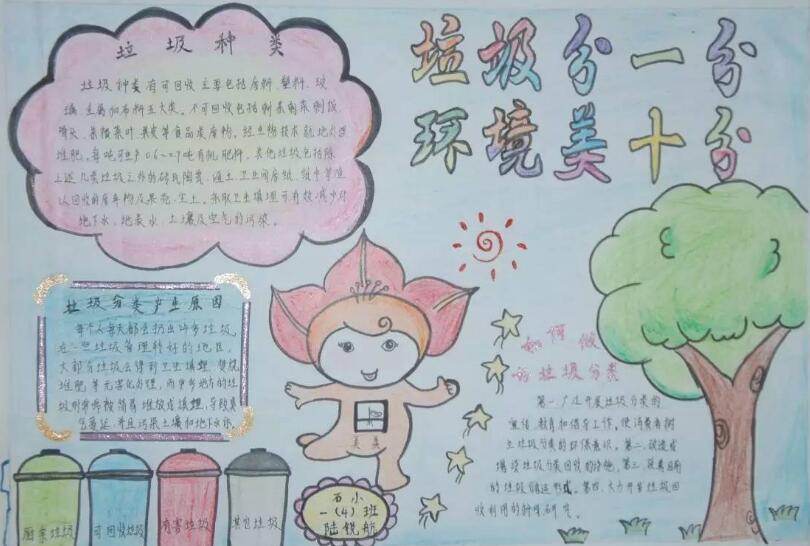 垃圾分一分
环境美十分
垃圾种类
垃圾种类有可回收主要包括废料、塑料、玻
璃、金属和布料五大类。不可回收包括剩菜剩饭、
骨头、菜根菜叶、果皮等食品类废物。经生物技术就地处理
堆肥,每吨可生产0.6~0.7吨有机肥料。其他垃圾包括除
上述几类垃圾之外的砖瓦陶瓷、渣土、卫生间废纸、纸巾等难
以回收的废弃物及果壳、尘土。采取卫生填埋可有效减少对
地下水、地表水、土壤及空气的污染。
垃圾分类产生原因
每个人每天都会扔出许多垃圾,
在一些垃圾管理较好的地区,
大部分垃圾会得到卫生填埋、焚烧、
堆肥等无害化处理,而更多地方的垃
圾则常常被简易堆放或填埋,导致臭
气蔓延,并且污染土壤和地下水体。
如何做
好垃圾分类
第一、广泛开展垃圾分类的
宣传、教育和倡导工作,使消费者树
立垃圾分类的环保意识。第二、改造或
增设垃圾分类回收的设施。第三、改善
的垃圾储运形式。第四、大力开展垃圾回
收利用的科学研究。
美美
厨余垃圾
可回收垃圾
有害垃圾
其它垃圾
石小
一(4)班
陆锐航